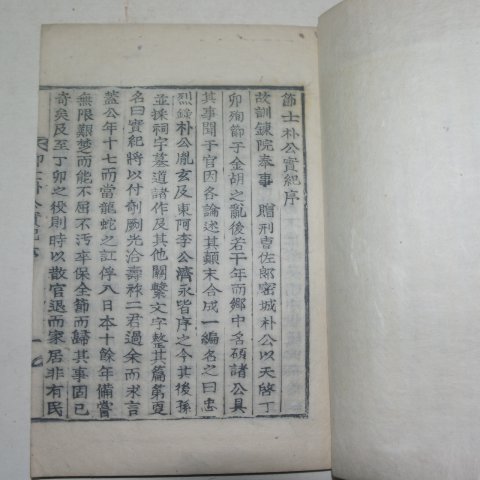 節士朴公實紀序
故訓鍊院奉事 贈刑曹佐郎密城朴公以天啓丁
卯殉節于金胡之亂後若干年而鄉中名碩諸公具
其事聞于官因各論述其顛末合成一編名之曰忠
烈錄朴公胤玄及東阿李公濟永皆序之今其後孫
並採祠宇墓道諸作及其他關繫文字整其篇第更
名曰實紀將以付剞劂光洽壽稀二君過余而求言
蓋公年十七而當龍蛇之訌俘入日本十餘年備嘗
無限艱楚而能不屈不污卒保全節而歸其事固已
奇矣及至丁卯之役則時以散官退而家居非有民